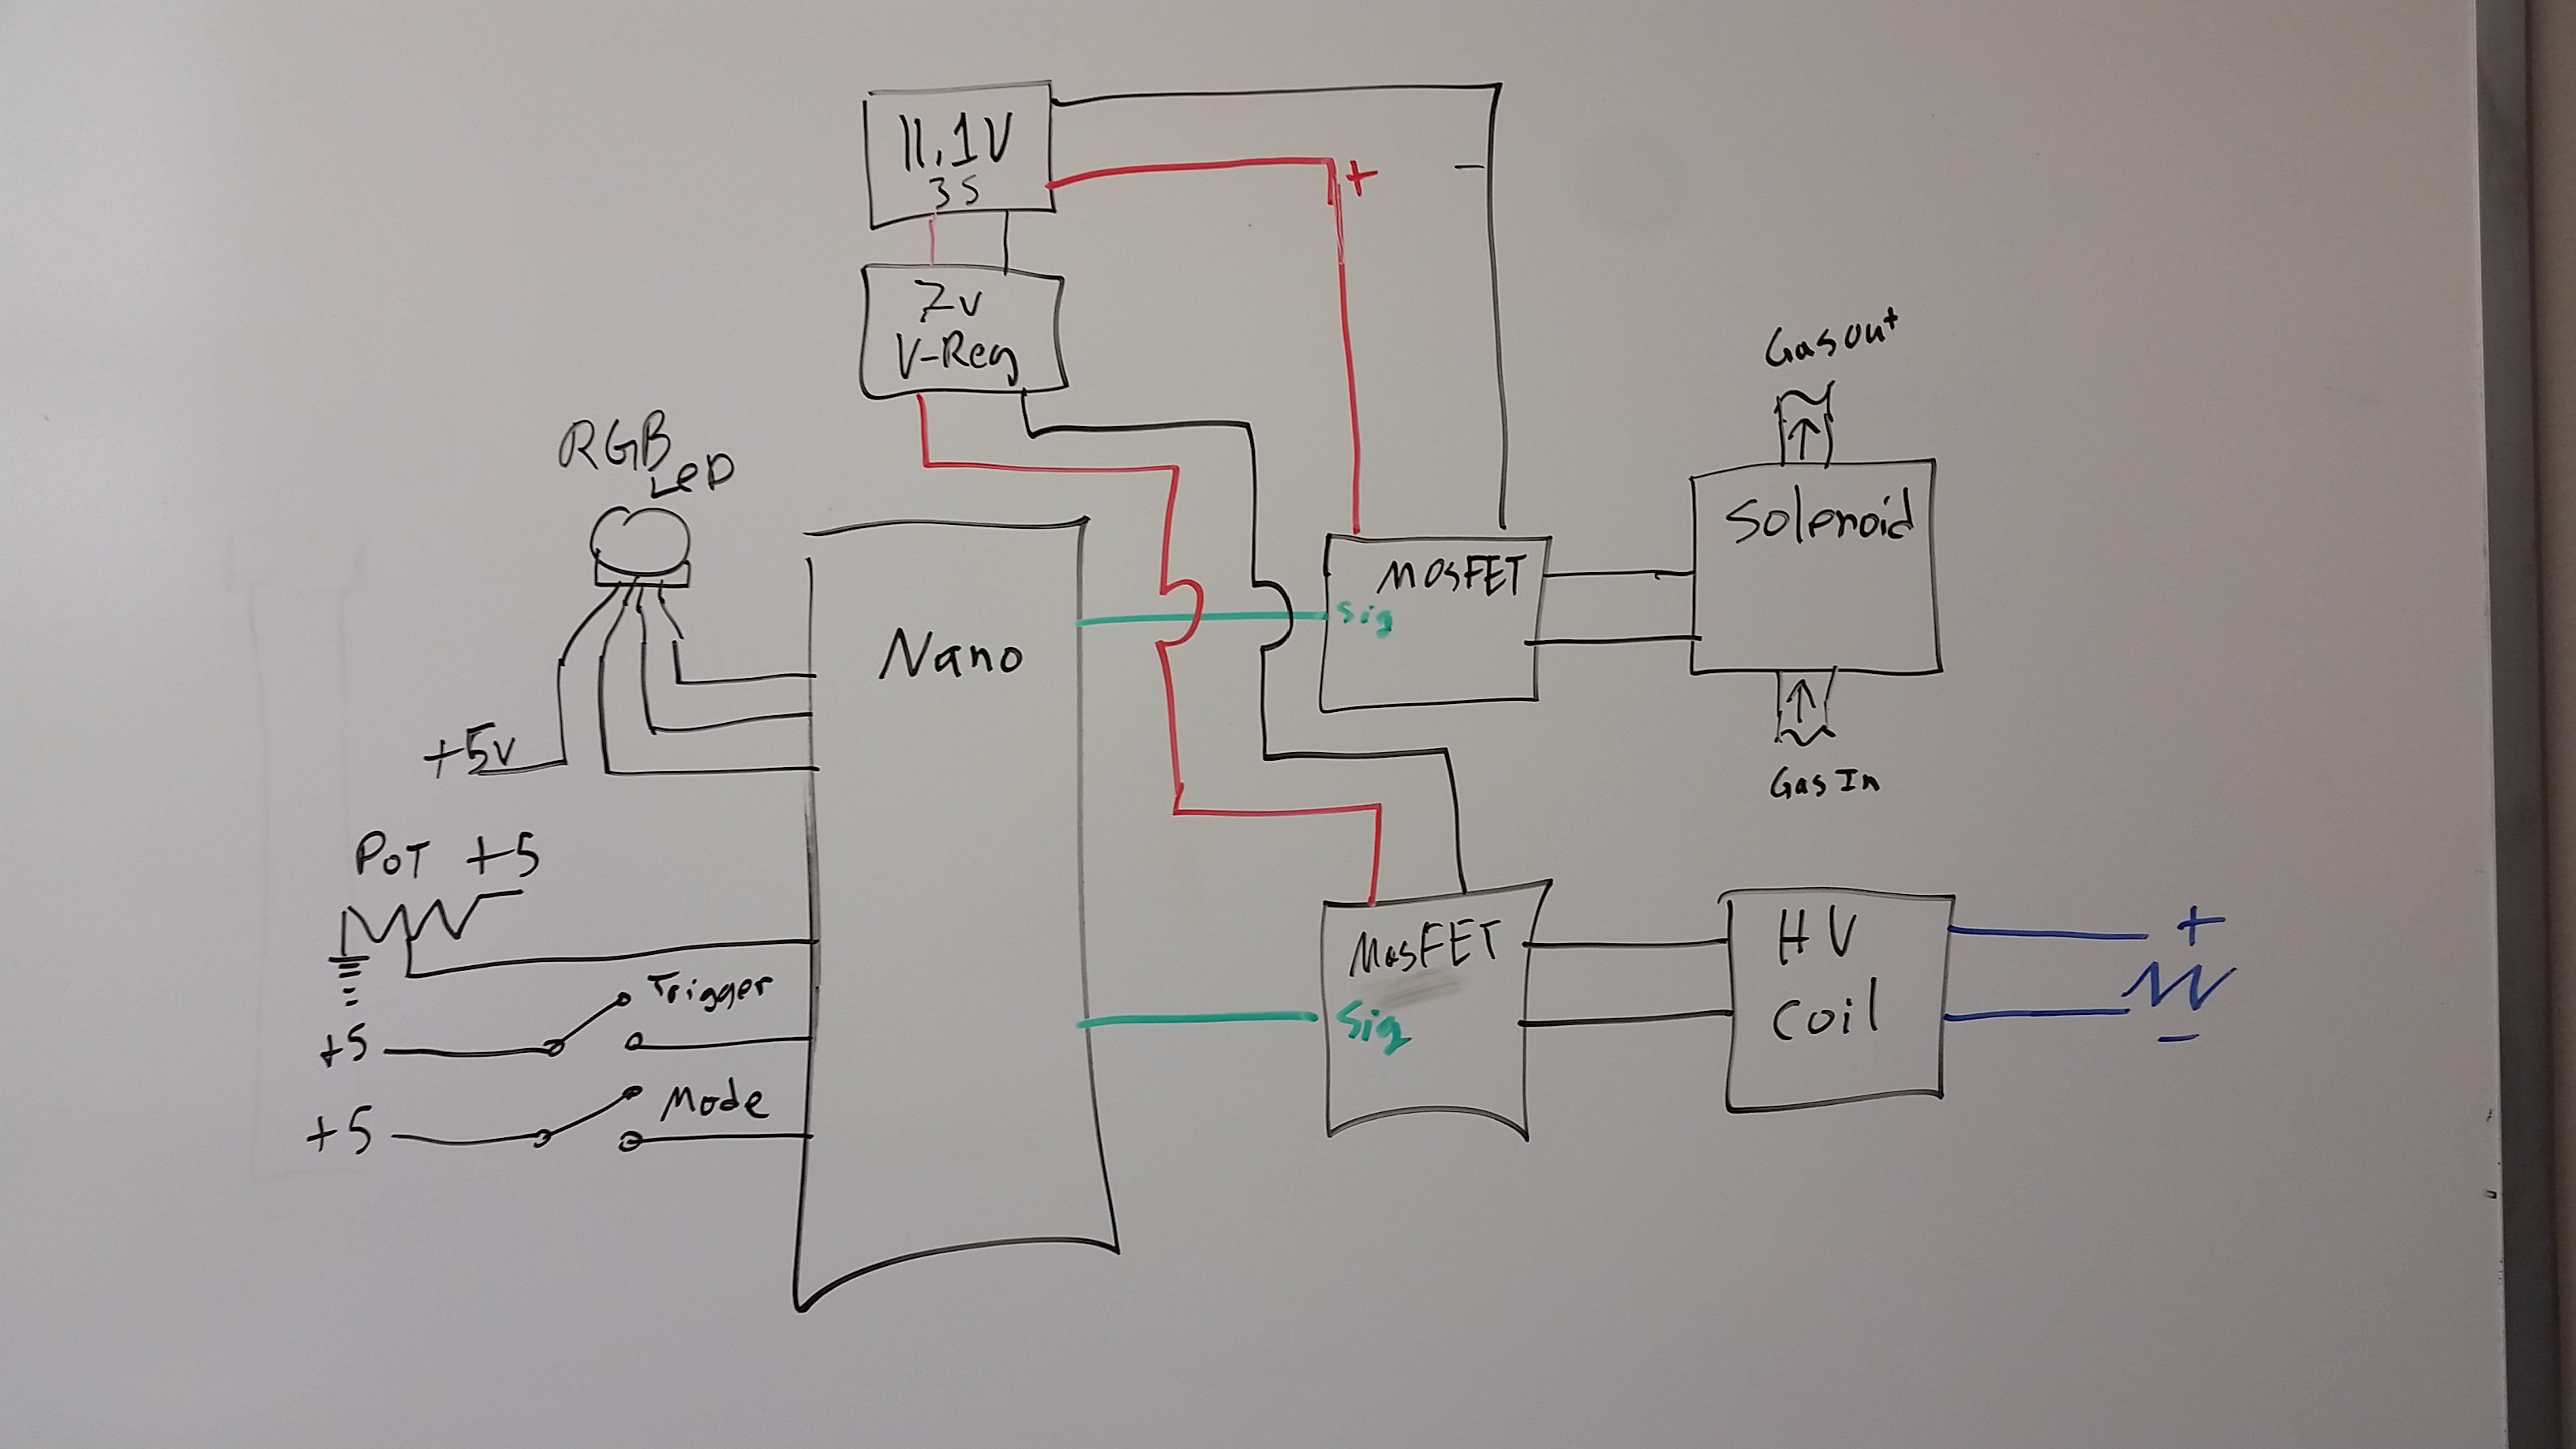 11.1V
3S
+
-
7v
V-Reg
Gas out
RGB
LeD
Solenoid
MOSFET
Sig
Nano
+5v
Gas In
POT +5
MosFET
Sig
HV
Coil
+
-
Trigger
+5
Mode
+5